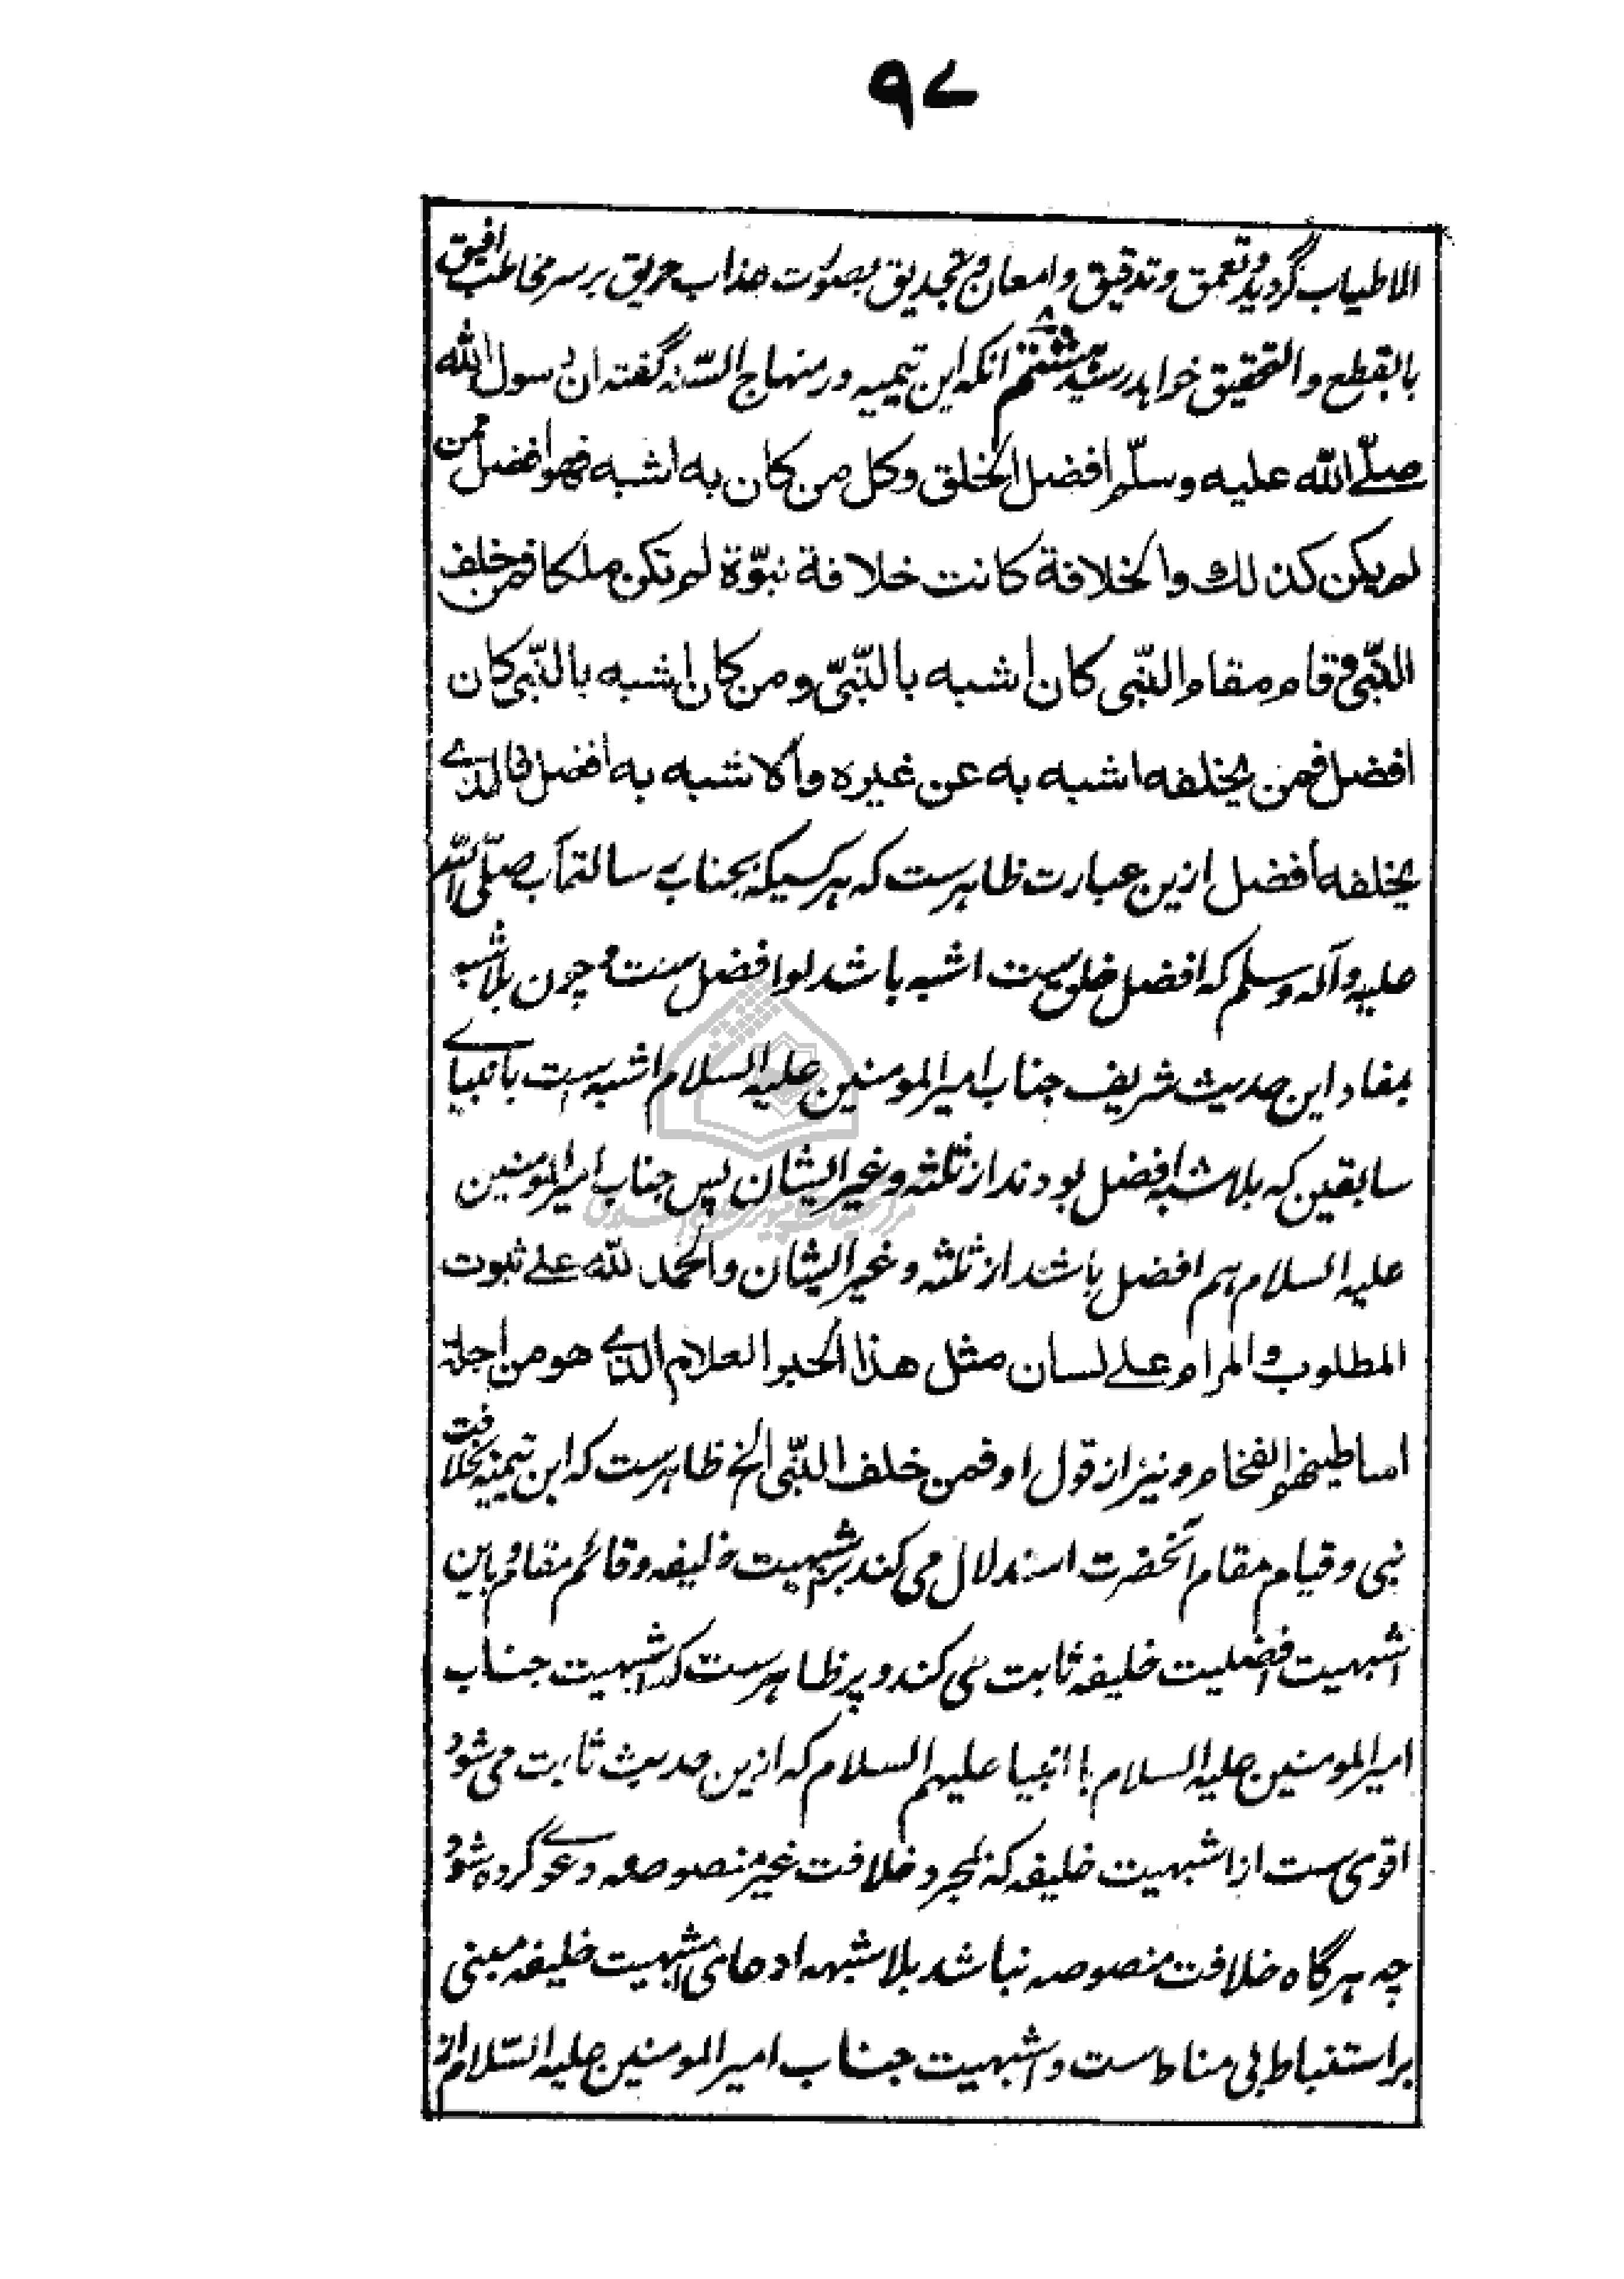 ۹۷
الاطیاب گردید و تعمق و تدقیق و امعان و تحدیق بصورت عذاب حریق بر سر مخاطب افیق
بالقطع و التحقیق خواهد رسید هشتم انکه ابن تیمیه در منهاج السّنه گفته ان رسول الله
صلّے الله علیه وسلّم افضل الخلق وکل من کان به اشبه فهو افضل ممن
لم یکن کذلك والخلافة کانت خلافة نبوّة لم تکن ملکا فمن خلف
النّبی و قام مقام النّبی کان اشبه بالنّبیّ ومن کان اشبه بالنّبی کان
افضل فمن یخلفه اشبه به عن غیره والاشبه به افضل فالذے
یخلفه افضل ازین عبارت ظاهرست که هر کسیکه بجناب رسالتمآب صلّی الله
علیه وآله وسلم که افضل خلق ست اشبه باشد او افضل ست و چون بلا شبه
بمفاد این حدیث شریف جناب امیرالمومنین علیه السلام اشبه ست بانبیاے
سابقین که بلا شبه افضل بودند از ثلثه و غیر ایشان پس جناب امیرالمومنین
علیه السلام هم افضل باشند از ثلثه و غیر ایشان والحمد لله علے ثبوت
المطلوب والمرام علے لسان مثل هذا الحبر العلام الذے هو من اجلة
اساطینهم الفخام و نیز از قول او فمن خلف النّبی الخ ظاهرست که ابن تیمیه بخلافت
نبی و قیام مقام آنحضرت استدلال می کند بر اشبهیت خلیفه و قائم مقام و باین
اشبهیت افضلیت خلیفه ثابت می کند و پر ظاهرست که اشبهیت جناب
امیرالمومنین علیه السلام با انبیا علیهم السلام که ازین حدیث ثابت می شود
اقوی ست از اشبهیت خلیفه که بمجرد خلافت غیر منصوصه دعوے کرده شود
چه هرگاه خلافت منصوصه نباشد بلا شبهه ادعای اشبهیت خلیفه مبنی
بر استنباط بی مناط ست و اشبهیت جناب امیرالمومنین علیه السّلام از